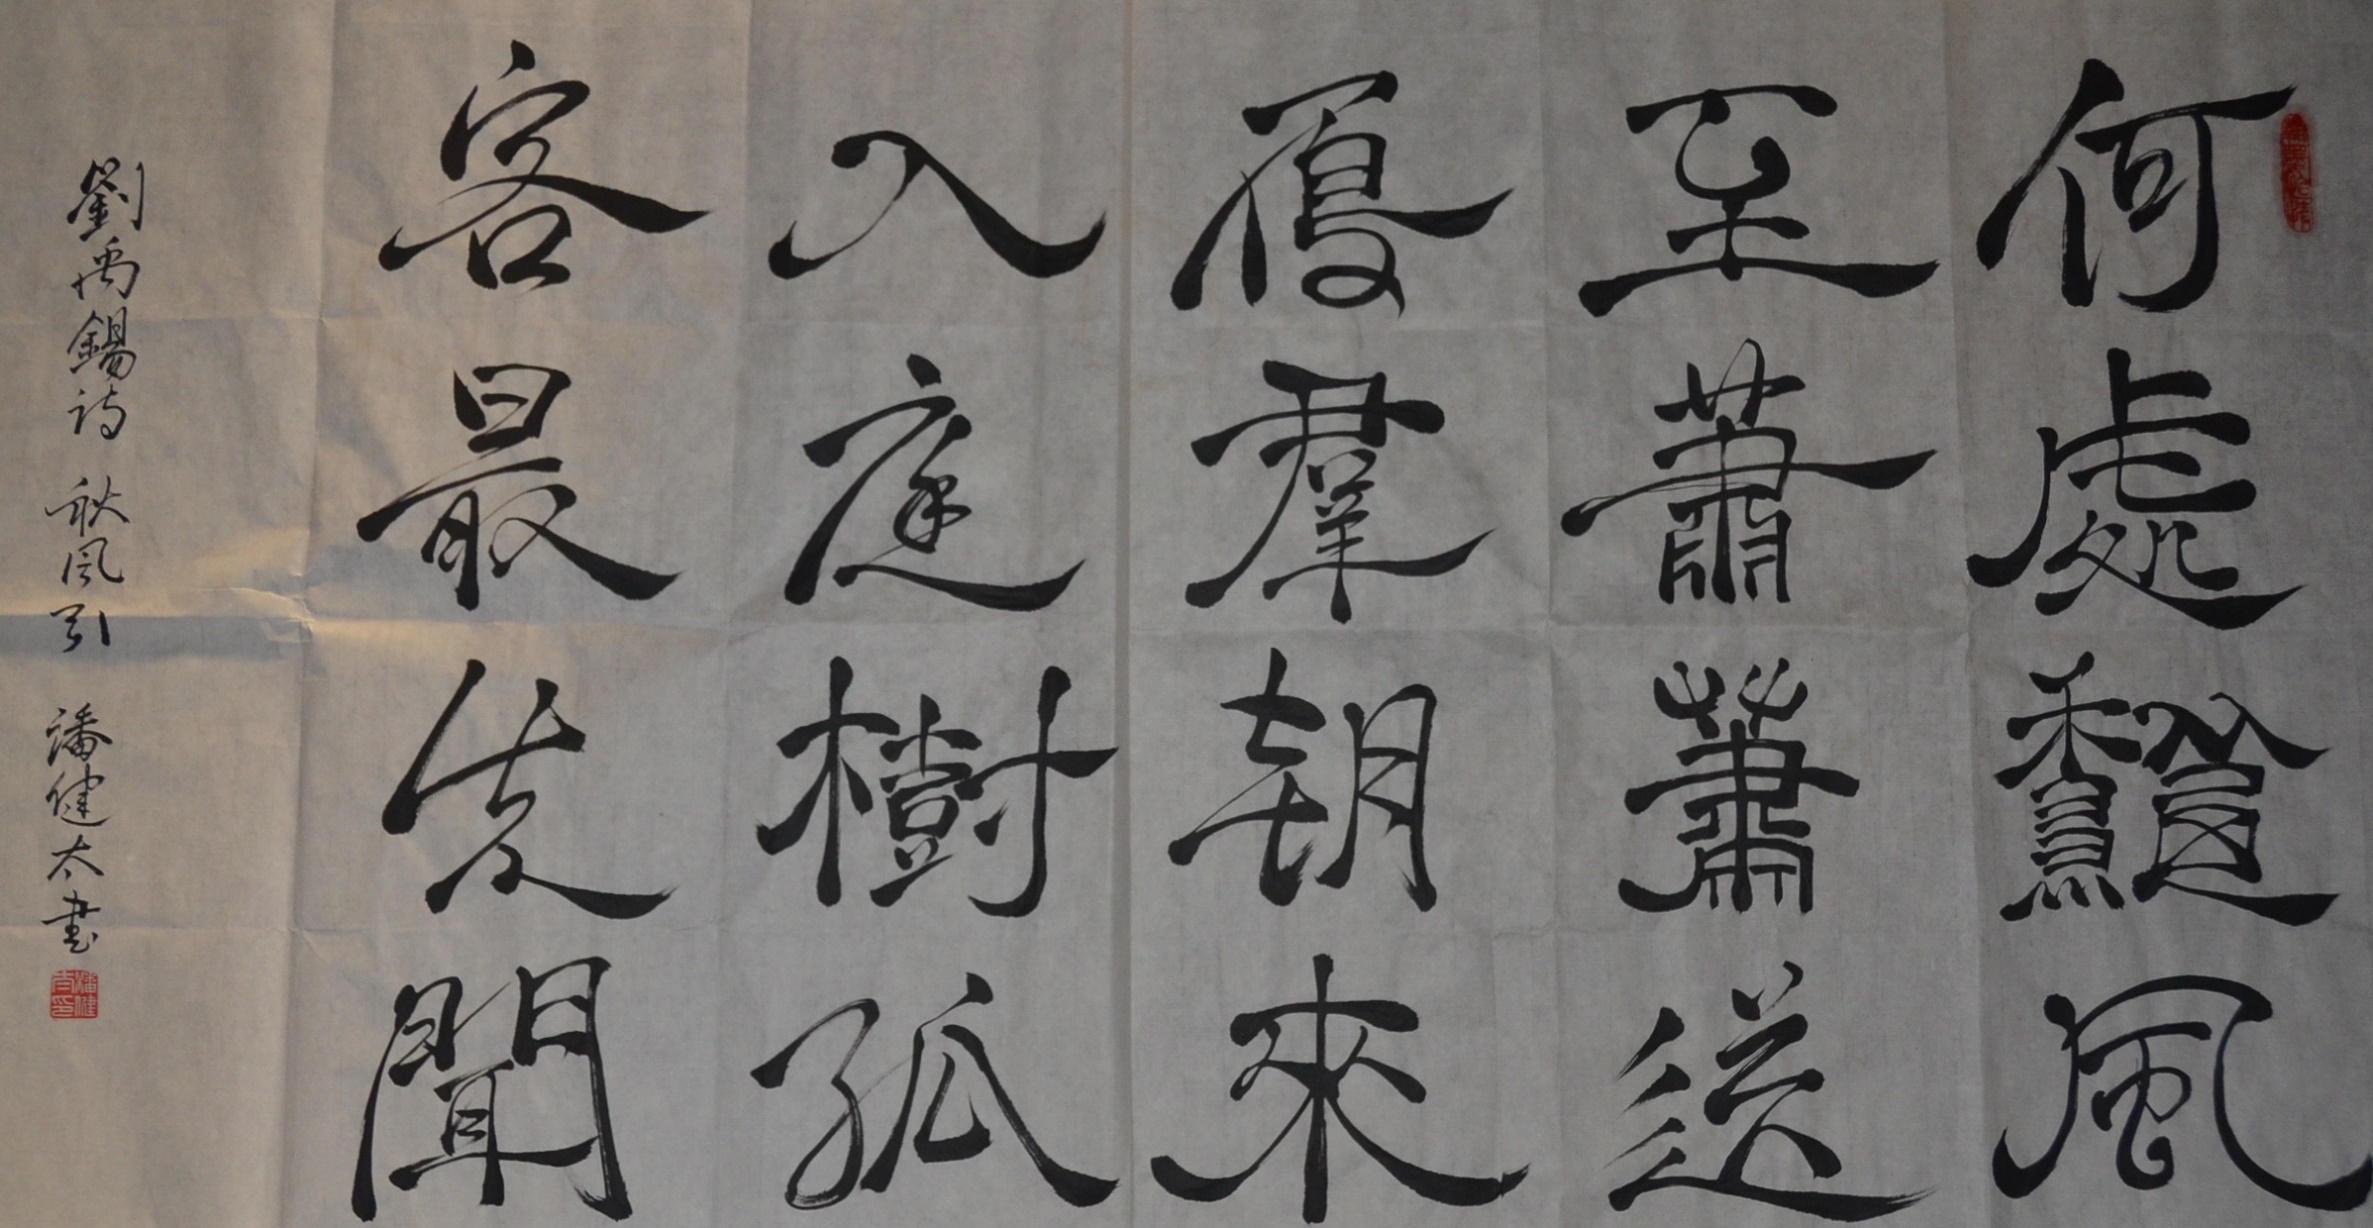 何處龝風
至蕭蕭送
雁羣朝來
入庭樹孤
客最先聞
劉禹錫詩 秋風引 潘健太書
潘健太印